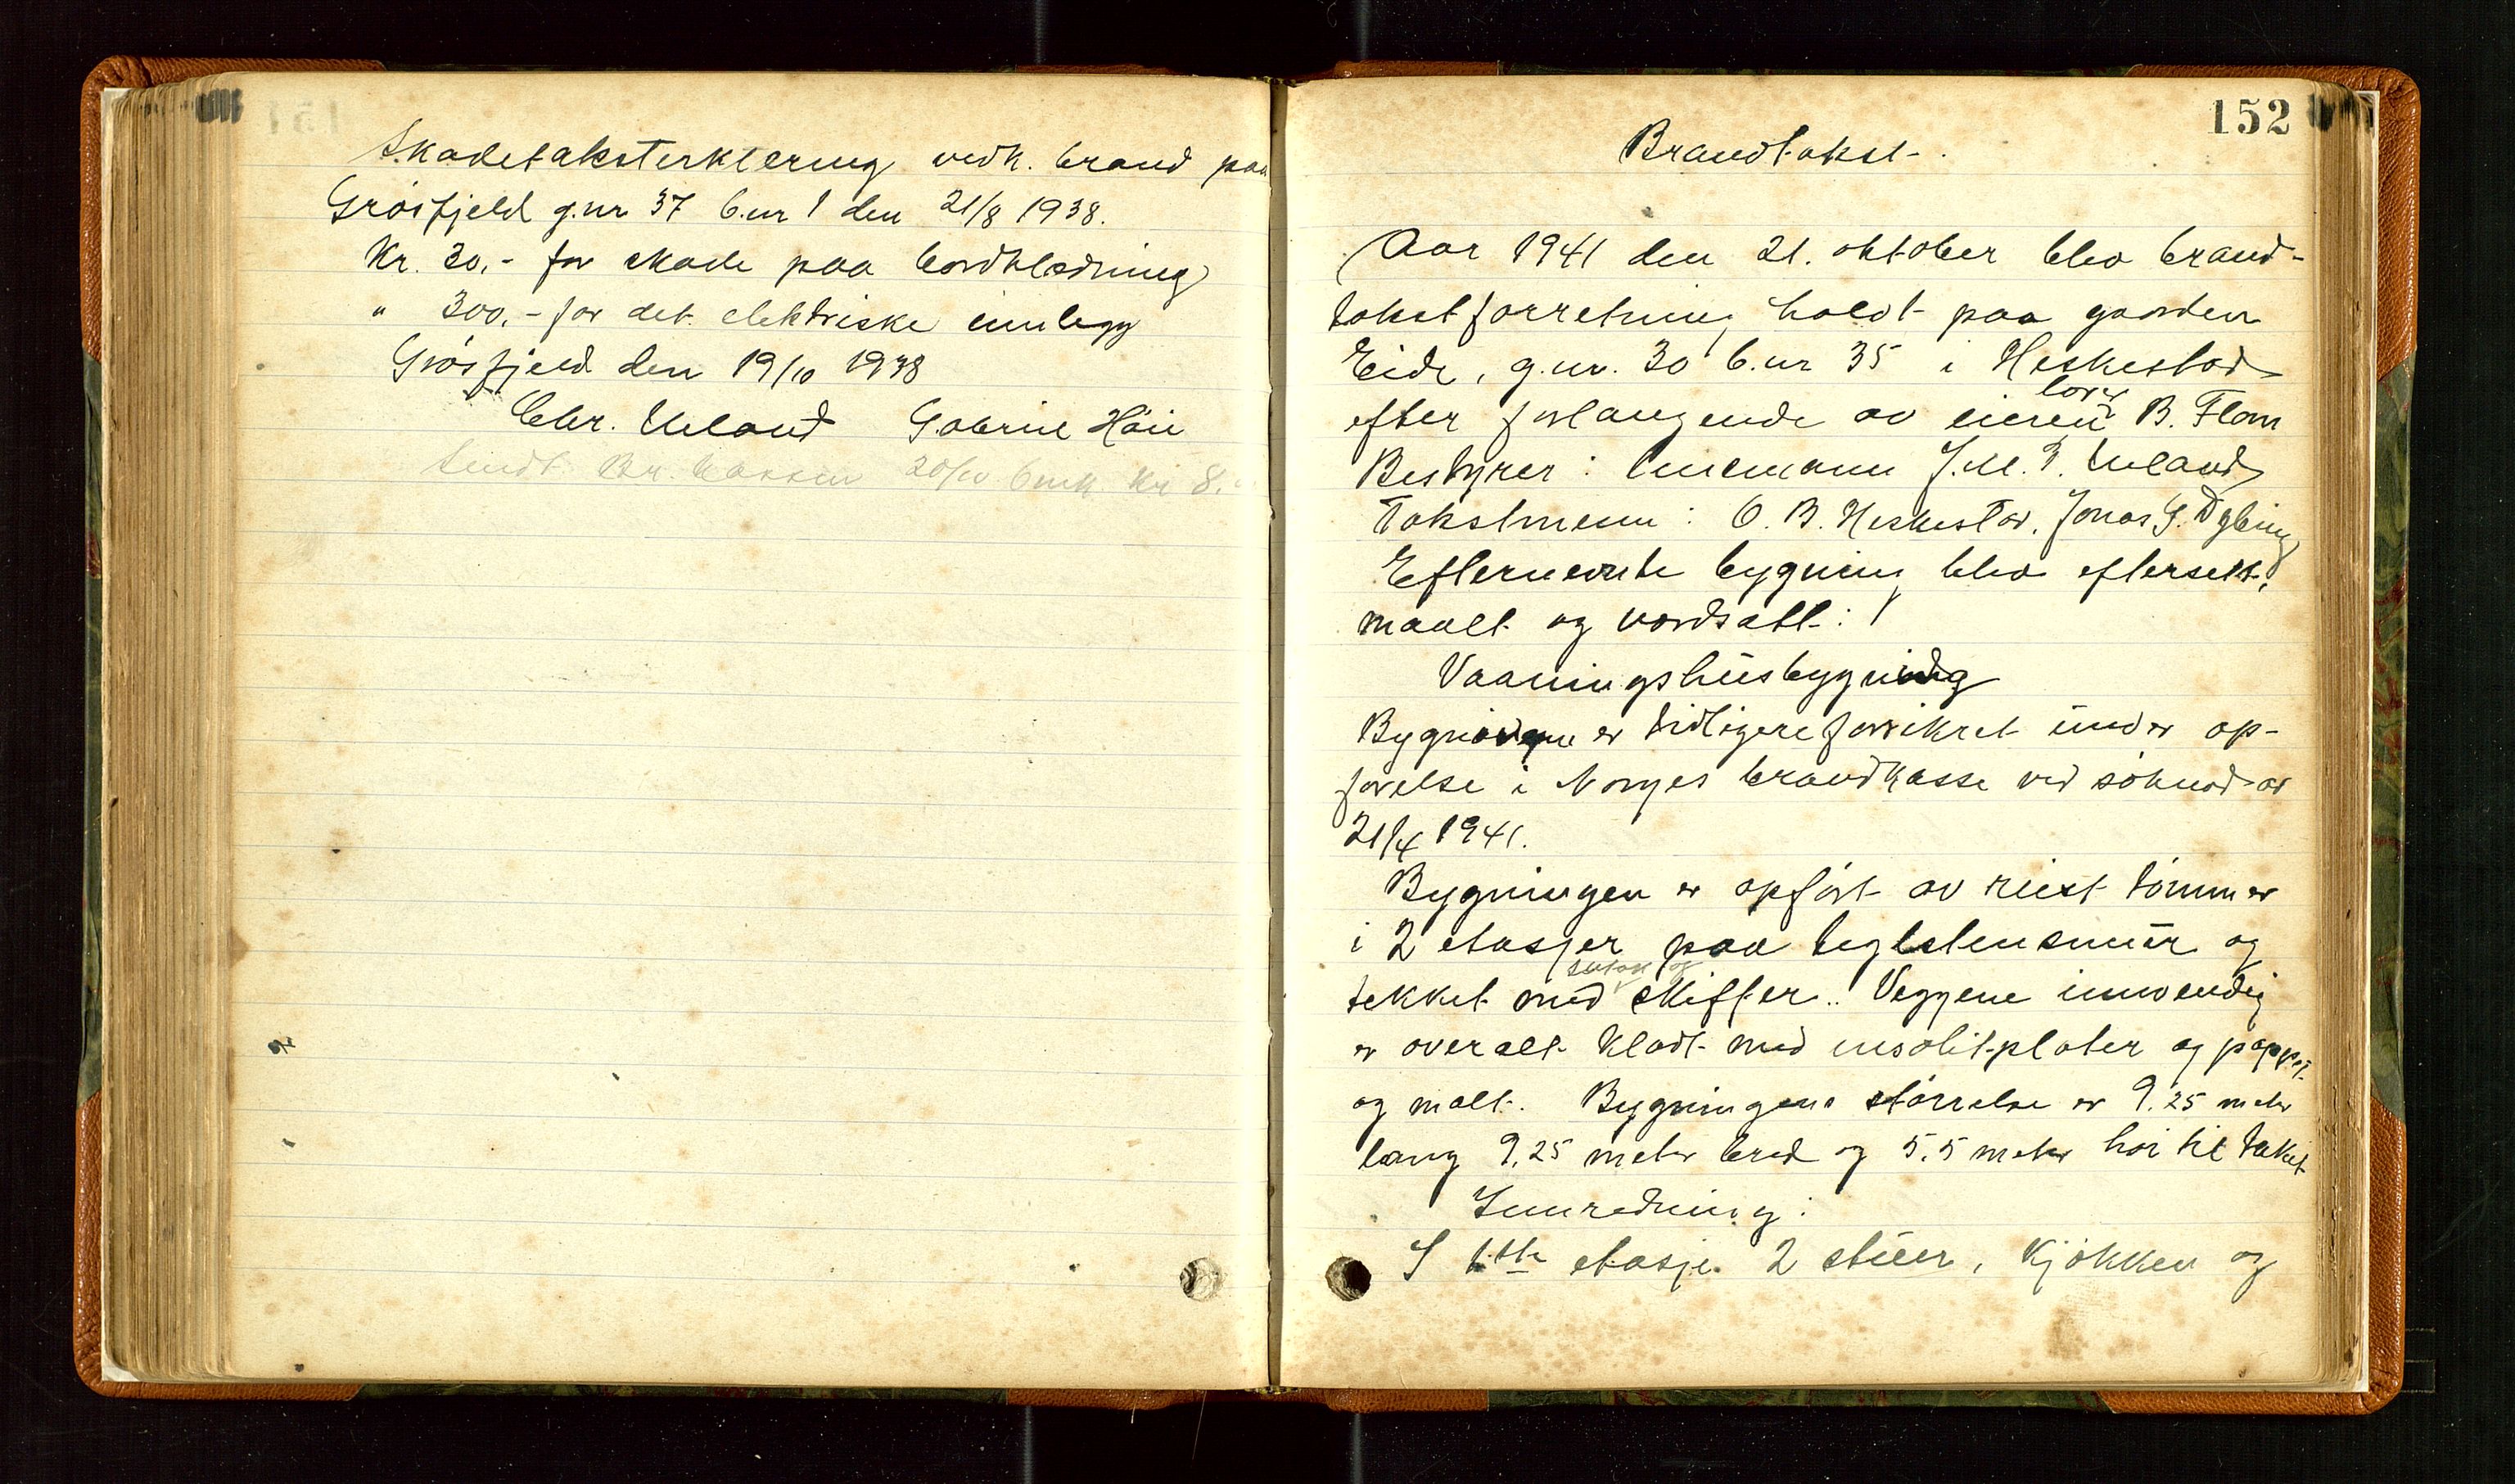 Skadetaksterklering vedk. brand paa
Grösfjeld g.nr 37 b.nr 1 den 21/8 1938.
Kr. 30,- for skade paa bordklædning
" 300,- for det elektriske innlegg
Grösfjeld den 19/10 1938
Chr. Ueland Gabriel Höie
Sendt Br. kassen 20/10 Kr 8.
152
Brandtakst.
Aar 1941 den 21. oktober blev brand-
takstforretning holdt paa gaarden
Eide, g.nr. 30 b.nr 35 i Heskestad
efter forlangende av eieren B. Flom
Bestyrer: lensmann J.M.T. Ueland
Takstmenn: O. B. Heskestad, Jonas G. Dybing
Efternevnte bygning blev efterset,
maalt og verdsatt:
Vaaningshusbygning
Bygningene er tidligere forsikret under op-
førelse i Norges brandkasse ved söknad av
21/4 1941.
Bygningen er opfört av reist tömmer
i 2 etasjer paa teglstensmur og
sutak og
tekket med skiffer. Veggene innvendig
er overalt klædt med insolitplater og pappet
og malt. Bygningens störrelse er 9.25 meter
lang 9,25 meter bred og 5,5 meter höi til taket
Innredning:
I 1ste etasje 2 stuer, kjökken og